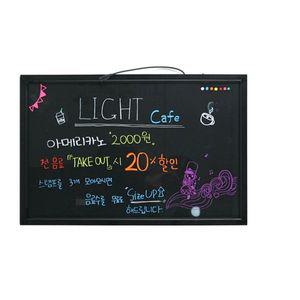 LIGHT Cafe
아메리카노 2000원
전 음료 「TAKE OUT」 시 20%할인
스탬프를 3개 모아오시면
음료수를 무료 Size UP
해드립니다.